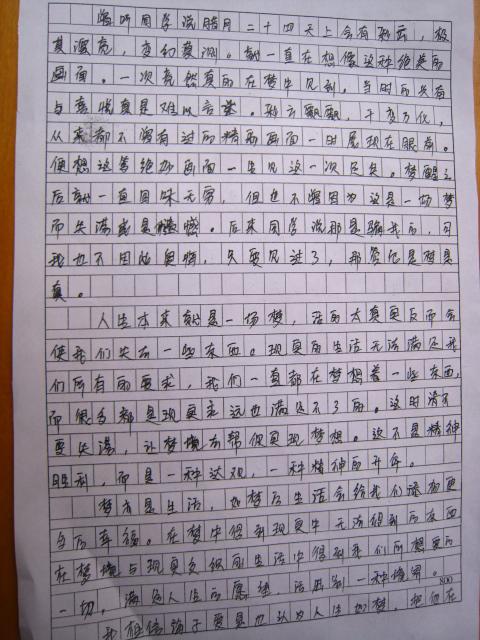 曾听同学说腊月二十四天上会有彩云，极
其漂亮，变幻莫测。就一直在想像这种绝美的
画面。一次竟然真的在梦中见到。当时的兴奋
与喜悦真是难以言望。彩云飘飘，千变万化，
从来都不曾有过的精丽画面一时展现在眼前。
便想这等绝妙画面一生见这一次足矣。梦醒之
后就一直回味无穷，但也不曾因为这是一场梦
而失落或是懊恼。后来同学说那是骗我的，可
我也不因此臭恼，只要见过了，那管它是梦是
真。
人生本来就是一场梦，活的太真实反而会
使我们失去一些东西。现实的生活无法满足我
们所有的要求，我们一直都在梦想着一些东西，
而很多都是现实永远也满足不了的。这时请不
要失落，让梦境去帮你实现梦想。这不是精神
胜利，而是一种达观，一种精神的升华。
梦亦是生活，如梦后生活会给我们添加更
多的幸福。在梦中得到现实中无法得到的东西
在梦境与现实交织的生活中得到我们所想要的
一切，满足人生的愿望，活出另一种境界。
800
我相信庄子要是也认为人生如梦，把他在